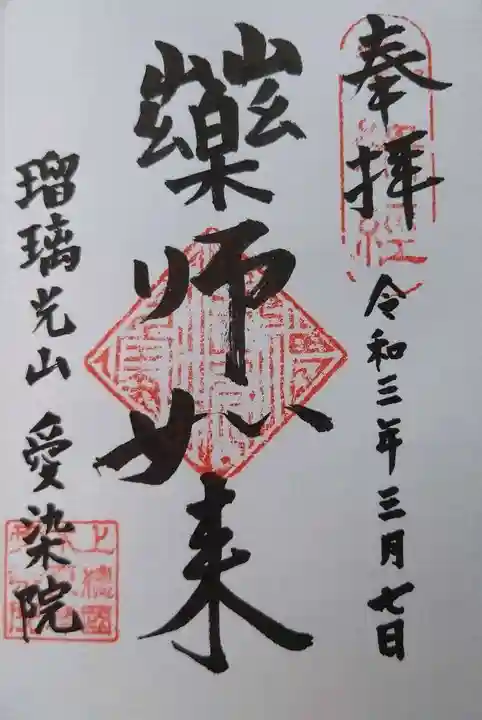 奉拝
令和三年三月七日
薬師如来
瑠璃光山 愛染院